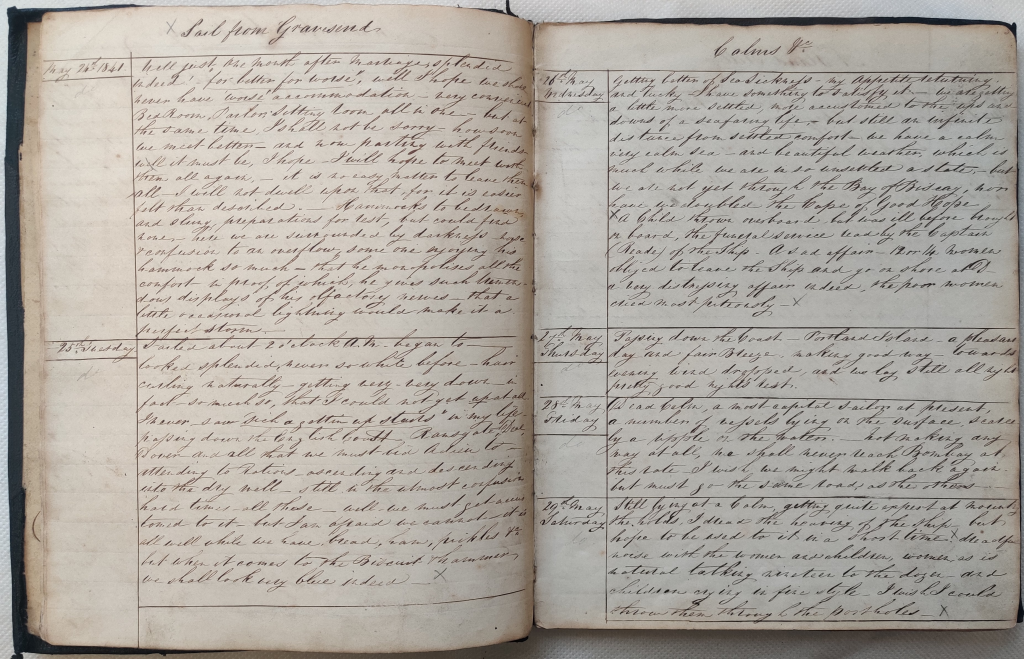 x Sail from Gravesend
May 24th 1841
Well just one month after marriage, splendid
indeed! "for better for worse", well I hope we shall
never have worse accommodation - very convenient
Bed Room, Parlor, Sitting Room all in one - but at
the same time, I shall not be sorry - how soon
we meet better - and now parting with friends
well it must be, I hope - I will hope to meet with
them all again, - it is no easy matter to leave them
all - I will not dwell upon that, for it is easier
felt than described. - Hammocks to be drawn
and slung, preparations for rest, but could find
none, here we are surrounded by darkness, noise
& confusion to an overflow, some one enjoying his
hammock so much - that he monopolises all the
comfort in proof of which, he gives such tremen-
dous displays of his olfactory nerves - that a
little occasional lightning would make it a
perfect storm. -
25th Tuesday
Sailed about 2 o'clock A.M. began to -
looked splendid, never so white before - hair
curling naturally - getting very - very down - in
fact - so much so, that I could not get up at all
I never saw such a gotten up "stunts" in my life -
passing down the English Coast, Ramsgate, Deal
Dover and all that we must bid Adieu to -
attending to Rations, ascending and descending
into the dry well - still in the utmost confusion
hard times all these - well we must get accus
tomed to it - but I am afraid we cannot - it is
all well while we have, bread, ham, pickles &c
but when it comes to the Biscuit & hammer,
we shall look very blue indeed - x
Calms &c
26th May
Wednesday
Getting better of Sea Sickness - my appetite returning
and lucky I have something to satisfy it - we are getting
a little more settled, more accustomed to the ups and
downs of a seafaring life - but still an infinite
distance from settled comfort - we have a calm
very calm sea - and beautiful weather, which is
much while we are in so unsettled a state, - but
we are not yet through the Bay of Biscay, nor
have we doubled the Cape of Good Hope
x A Child thrown overboard but was ill before brought
on board, the funeral service read by the Captain
(Reade) of the Ship. A sad affair - 12 or 14 women
obliged to leave the Ship and go on shore at D-
a very distressing affair indeed, the poor women
cried most piteously - x
27th May
Thursday
Passing down the Coast - Portland Island - a pleasant
day and fair Breeze. making good way - towards
evening wind dropped, and we lay still all night
pretty good nights rest.
28th May
Friday
Dead Calm, a most capital sailor at present,
a number of vessels lying on the surface, scarce
ly a ripple on the water. - not making any
way at all, we shall never reach Bombay at
this rate. I wish we might walk back again
but must go the same road, as the others -
29th May
Saturday
Still lying at a Calm, getting quite expert at mounting
the holds, I dread the heaving of the Ship, but
hope to be used to it in a short time. x dreadful
noise with the women and children, women as is
natural talking nineteen to the dozen and
children crying in fine style - I wish I could
throw them through the portholes - x